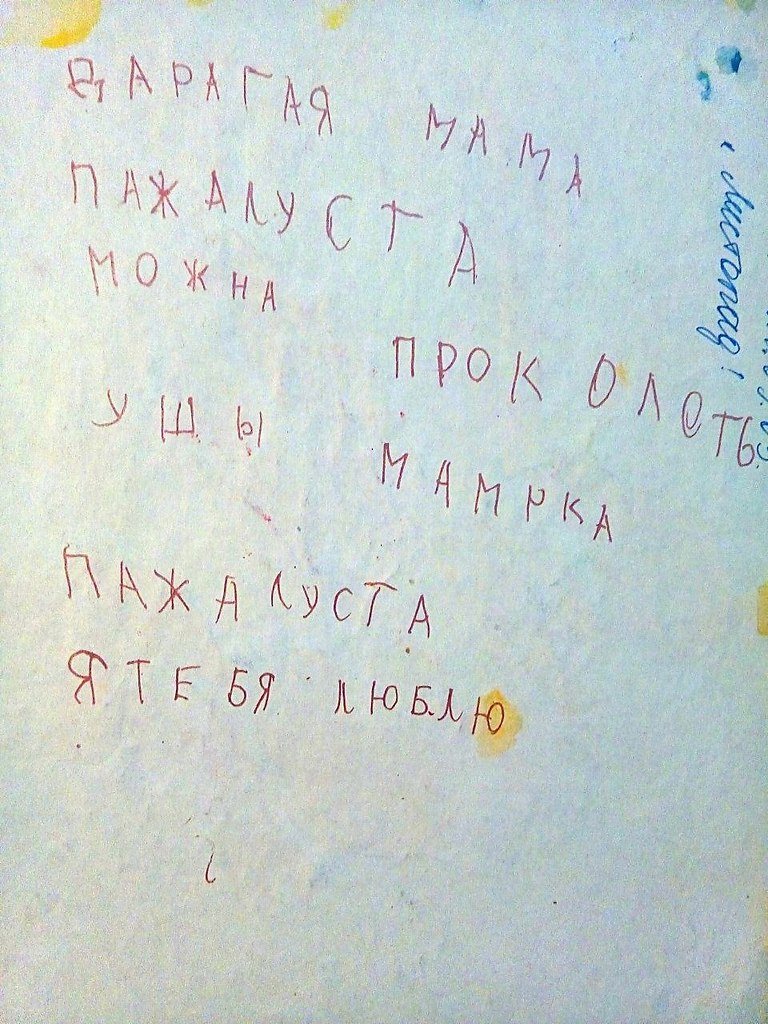 ДАРАГАЯ МАМА
ПАЖАЛУСТА
МОЖНА
ПРОКОЛОТЬ
УШЫ
МАМРКА
ПАЖАЛУСТА
Я ТЕБЯ ЛЮБЛЮ
"Листопад!